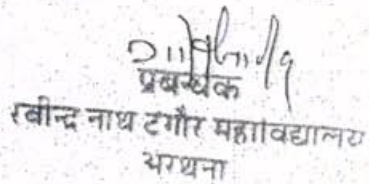 प्रबन्धक
रवीन्द्र नाथ टगौर महाविद्यालय
भरथना